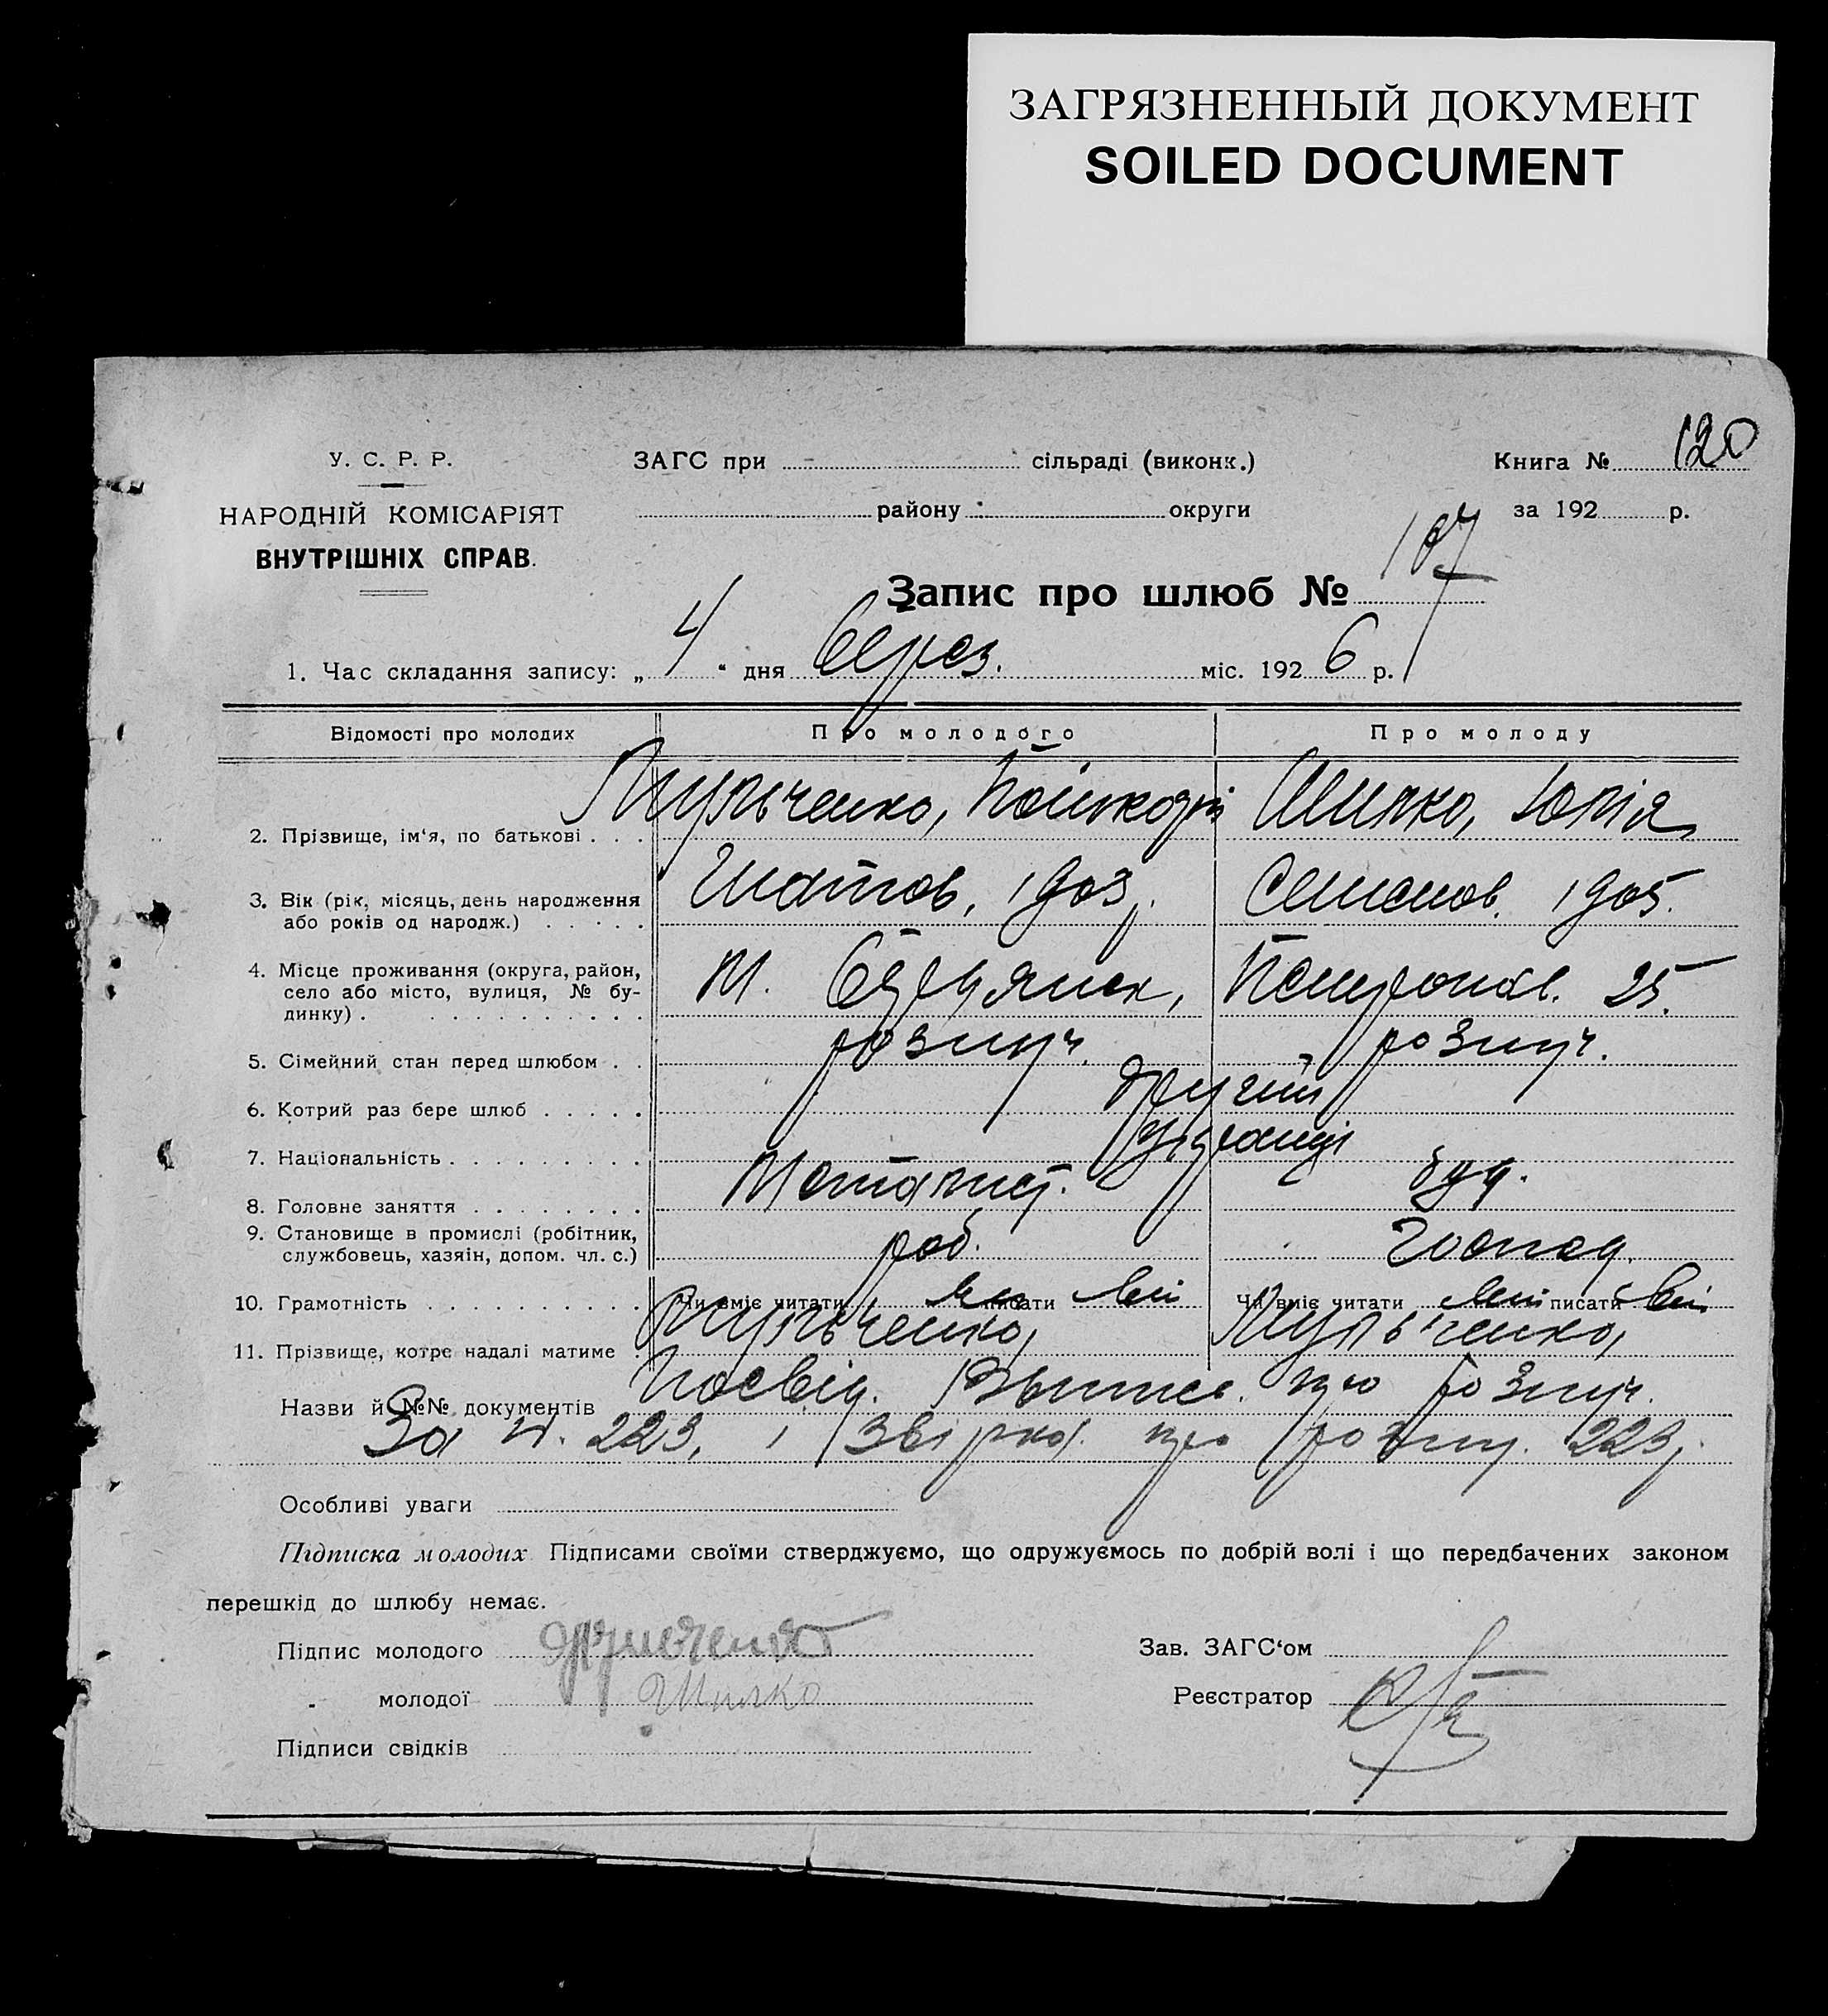 ЗАГРЯЗНЕННЫЙ ДОКУМЕНТ
SOILED DOCUMENT
У. С. Р. Р.
НАРОДНІЙ КОМІСАРІЯТ
ВНУТРІШНІХ СПРАВ.
ЗАГС при сільраді (виконк.)
району округи
Книга № 120
за 192 р.
Запис про шлюб № 107
1. Час складання запису: „ 4 “ дня берез. міс. 192 6 р.
Відомості про молодих Про молодого Про молоду
2. Прізвище, ім‘я, по батькові . . . Шимко, Юлія
3. Вік (рік, місяць, день народження 1903 р. Семенов. 1905.
або років од народж.) . . . . .
4. Місце проживання (округа, район, М. 25.
село або місто, вулиця, № бу-
динку) . . . . . . . . . . .
5. Сімейний стан перед шлюбом . . розлуч. розлуч.
6. Котрий раз бере шлюб . . . . . другий
7. Національність . . . . . . . . . українці
8. Головне заняття . . . . . . . .
9. Становище в промислі (робітник, роб. господ.
службовець, хазяін, допом. чл. с.)
10. Грамотність . . . . . . . . . . Чи вміє читати писати вмі Чи вміє читати вмі писати вмі
11. Прізвище, котре надалі матиме . Мульченко, Мульченко,
Назви й №№ документів Посвід. про розлуч.
за № 223, і про розлуч. 223,
Особливі уваги
Підписка молодих Підписами своїми стверджуємо, що одружуємось по добрій волі і що передбачених законом
перешкід до шлюбу немає.
Підпис молодого
„ молодої Шимко
Підписи свідків
Зав. ЗАГС‘ом
Реєстратор